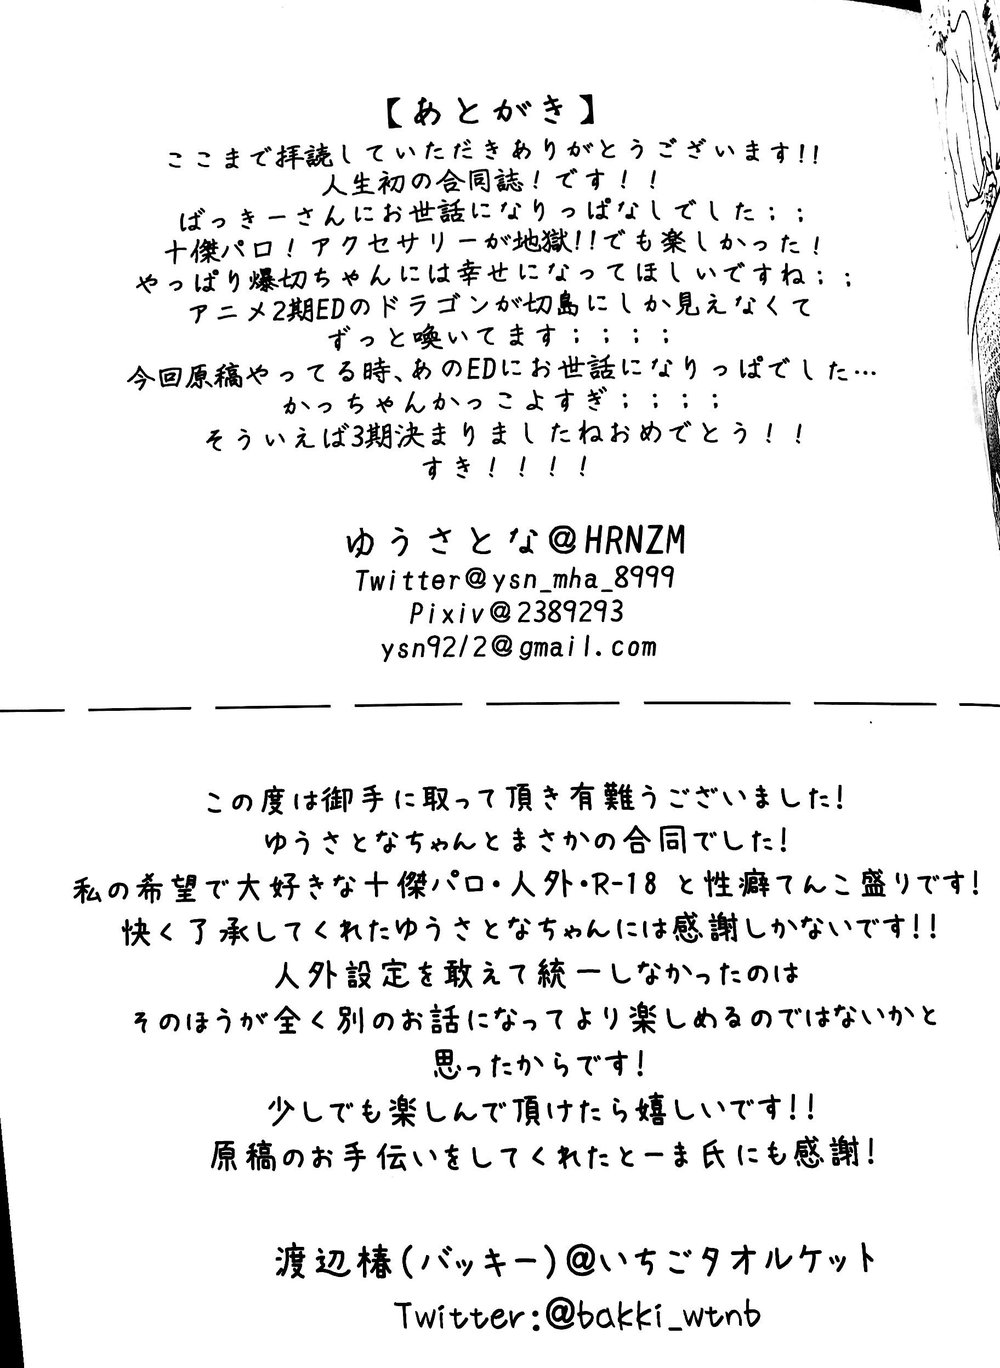 【あとがき】
ここまで拝読していただきありがとうございます!!
人生初の合同誌！です！！
ばっきーさんにお世話になりっぱなしでした；；
十傑パロ！アクセサリーが地獄!!でも楽しかった！
やっぱり爆切ちゃんには幸せになってほしいですね；；
アニメ2期EDのドラゴンが切島にしか見えなくて
ずっと喚いてます；；；；
今回原稿やってる時、あのEDにお世話になりっぱでした…
かっちゃんかっこよすぎ；；；；
そういえば3期決まりましたねおめでとう！！
すき！！！！
ゆうさとな@HRNZM
Twitter@ysn_mha_8999
Pixiv@2389293
ysn92/2@gmail.com
この度は御手に取って頂き有難うございました!
ゆうさとなちゃんとまさかの合同でした!
私の希望で大好きな十傑パロ・人外・R-18 と性癖てんこ盛りです!
快く了承してくれたゆうさとなちゃんには感謝しかないです!!
人外設定を敢えて統一しなかったのは
そのほうが全く別のお話になってより楽しめるのではないかと
思ったからです!
少しでも楽しんで頂けたら嬉しいです!!
原稿のお手伝いをしてくれたとーま氏にも感謝!
渡辺椿(バッキー)@いちごタオルケット
Twitter:@bakki_wtnb